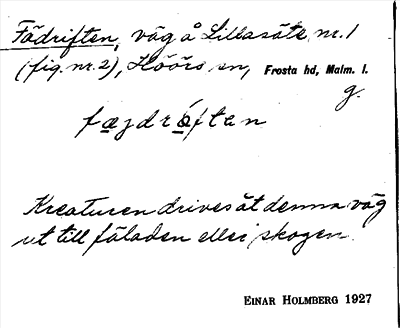 Fädriften, väg å Lillasäte, nr. 1
(fig. nr. 2), Höörs sn, Frosta hd, Malm. l.
g.
Kreaturen drives åt denna väg
ut till fäladen eller skogen.
EINAR HOLMBERG 1927